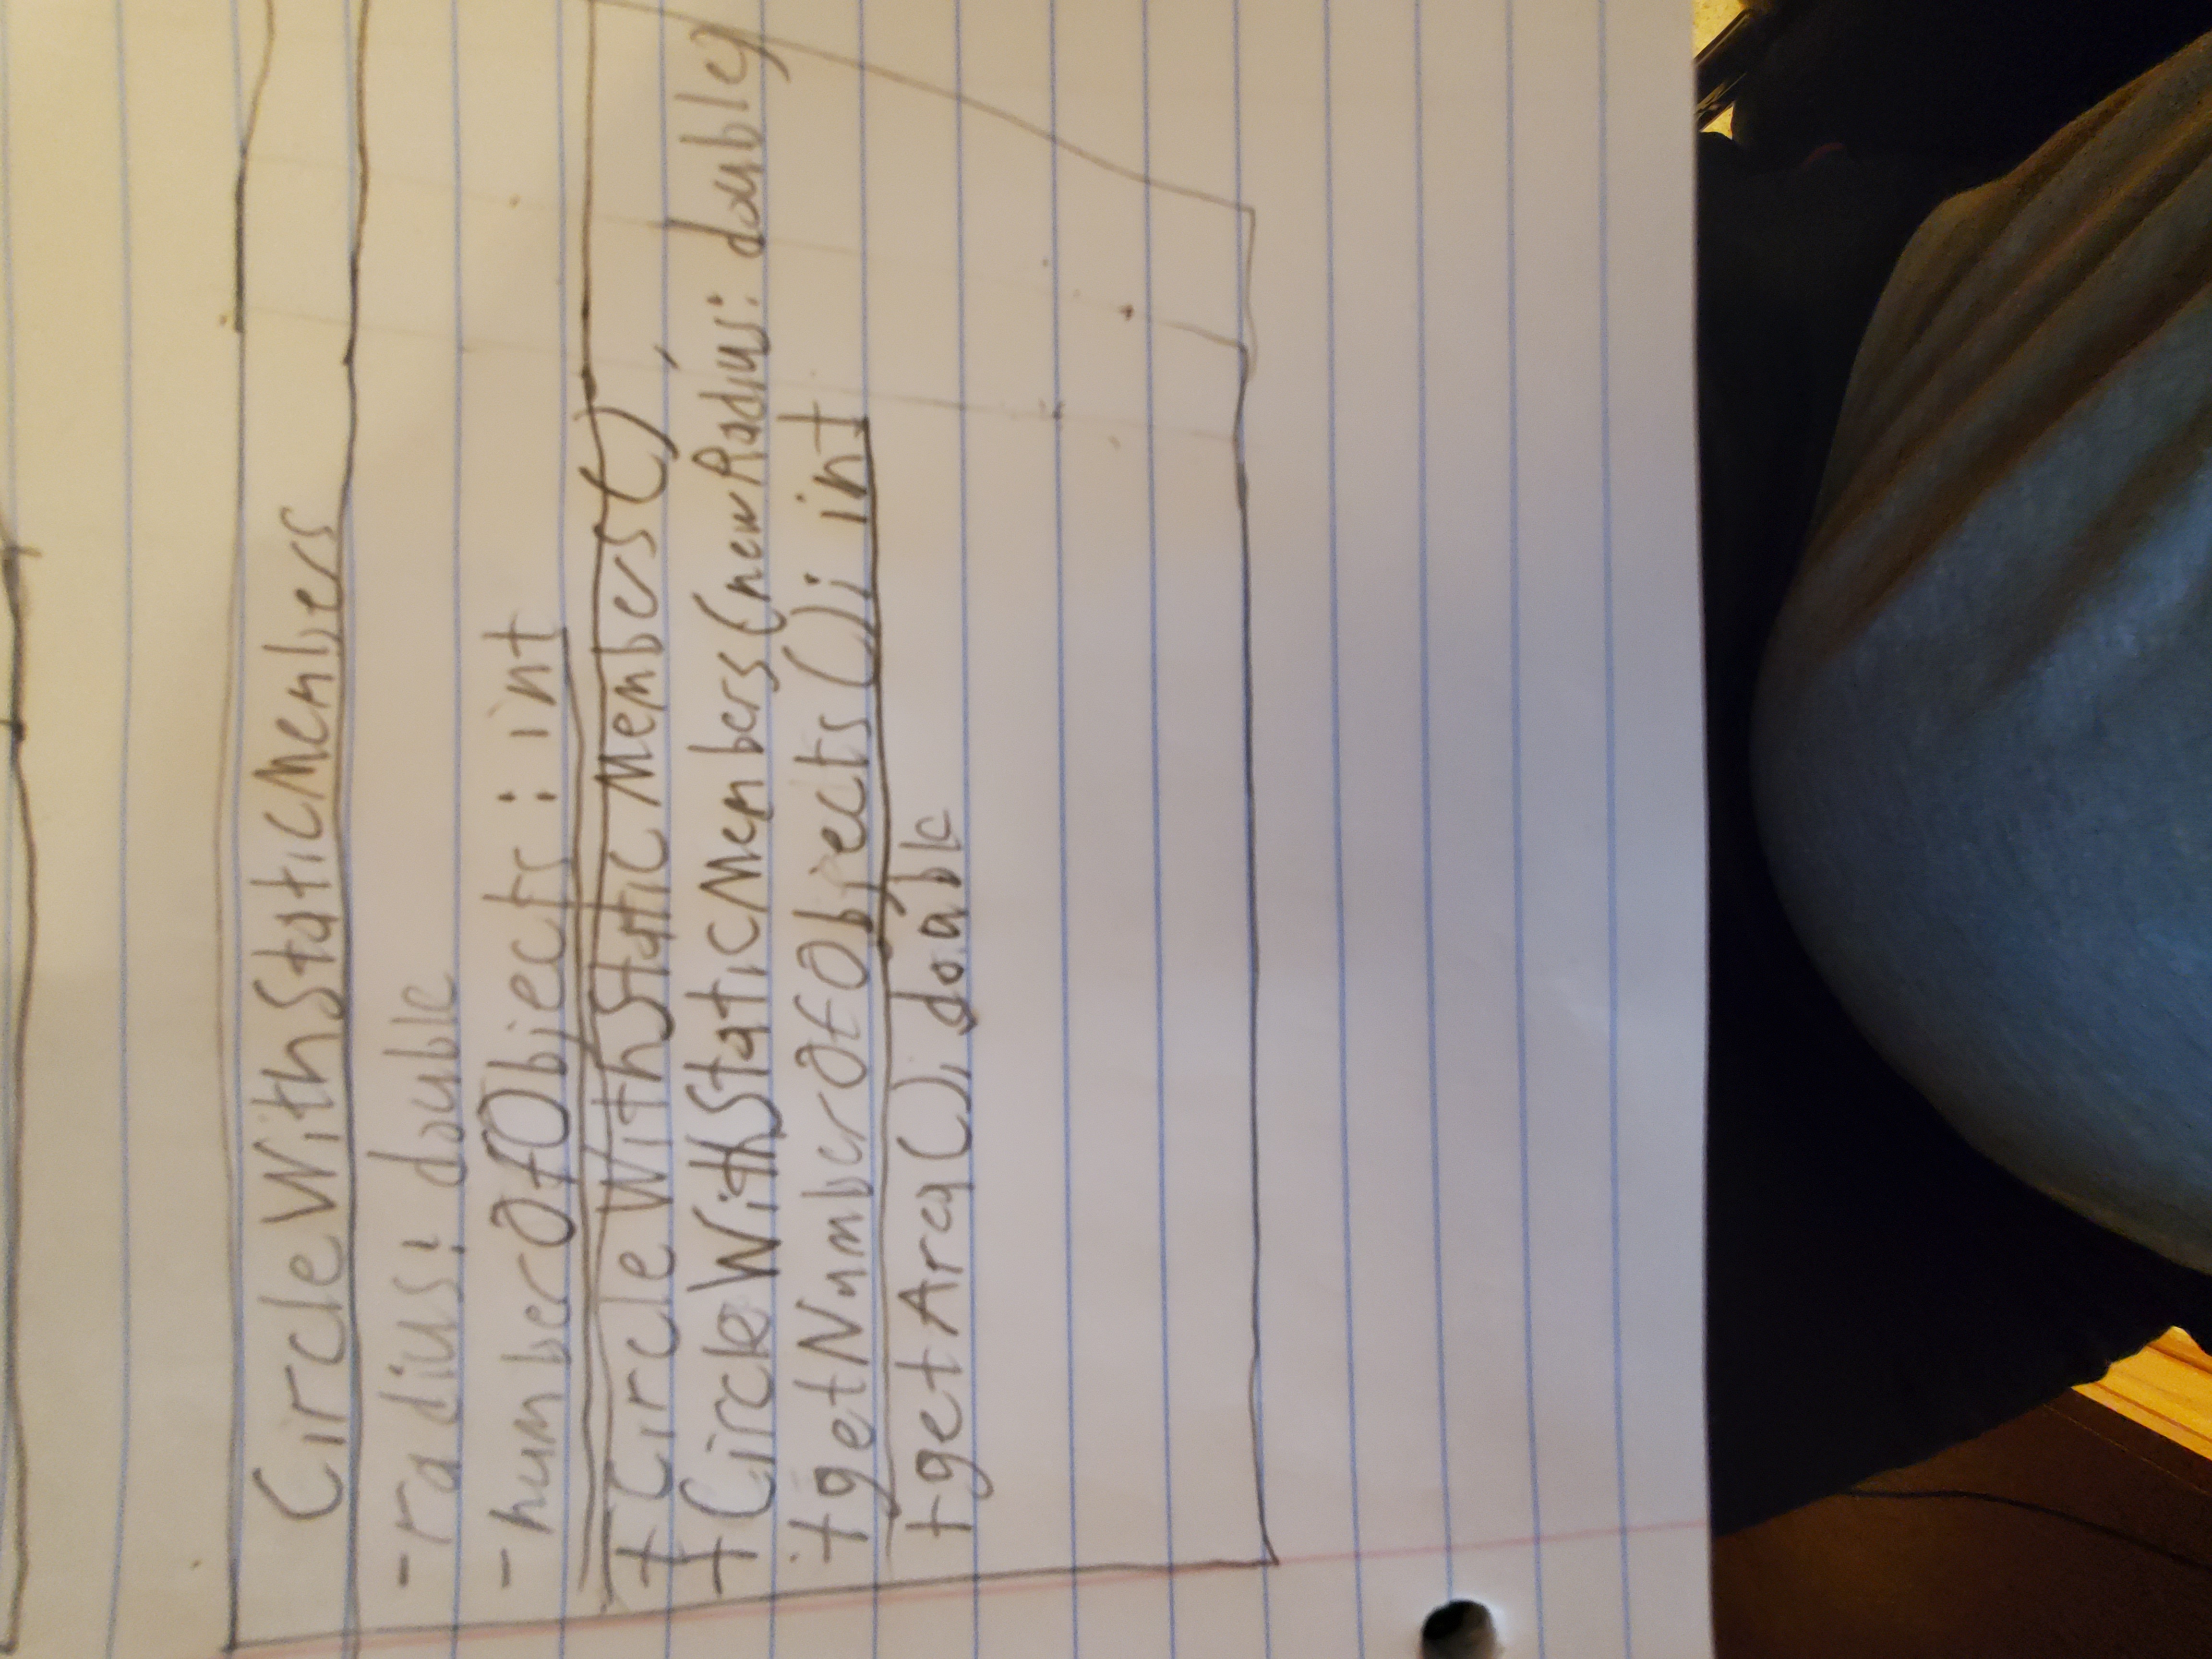 CircleWithStaticMembers
-radius: double
-numberOfObjects: int
+CircleWithStaticMembers()
+CircleWithStaticMembers(newRadius: double)
+getNumberOfObjects(): int
+getArea(): double